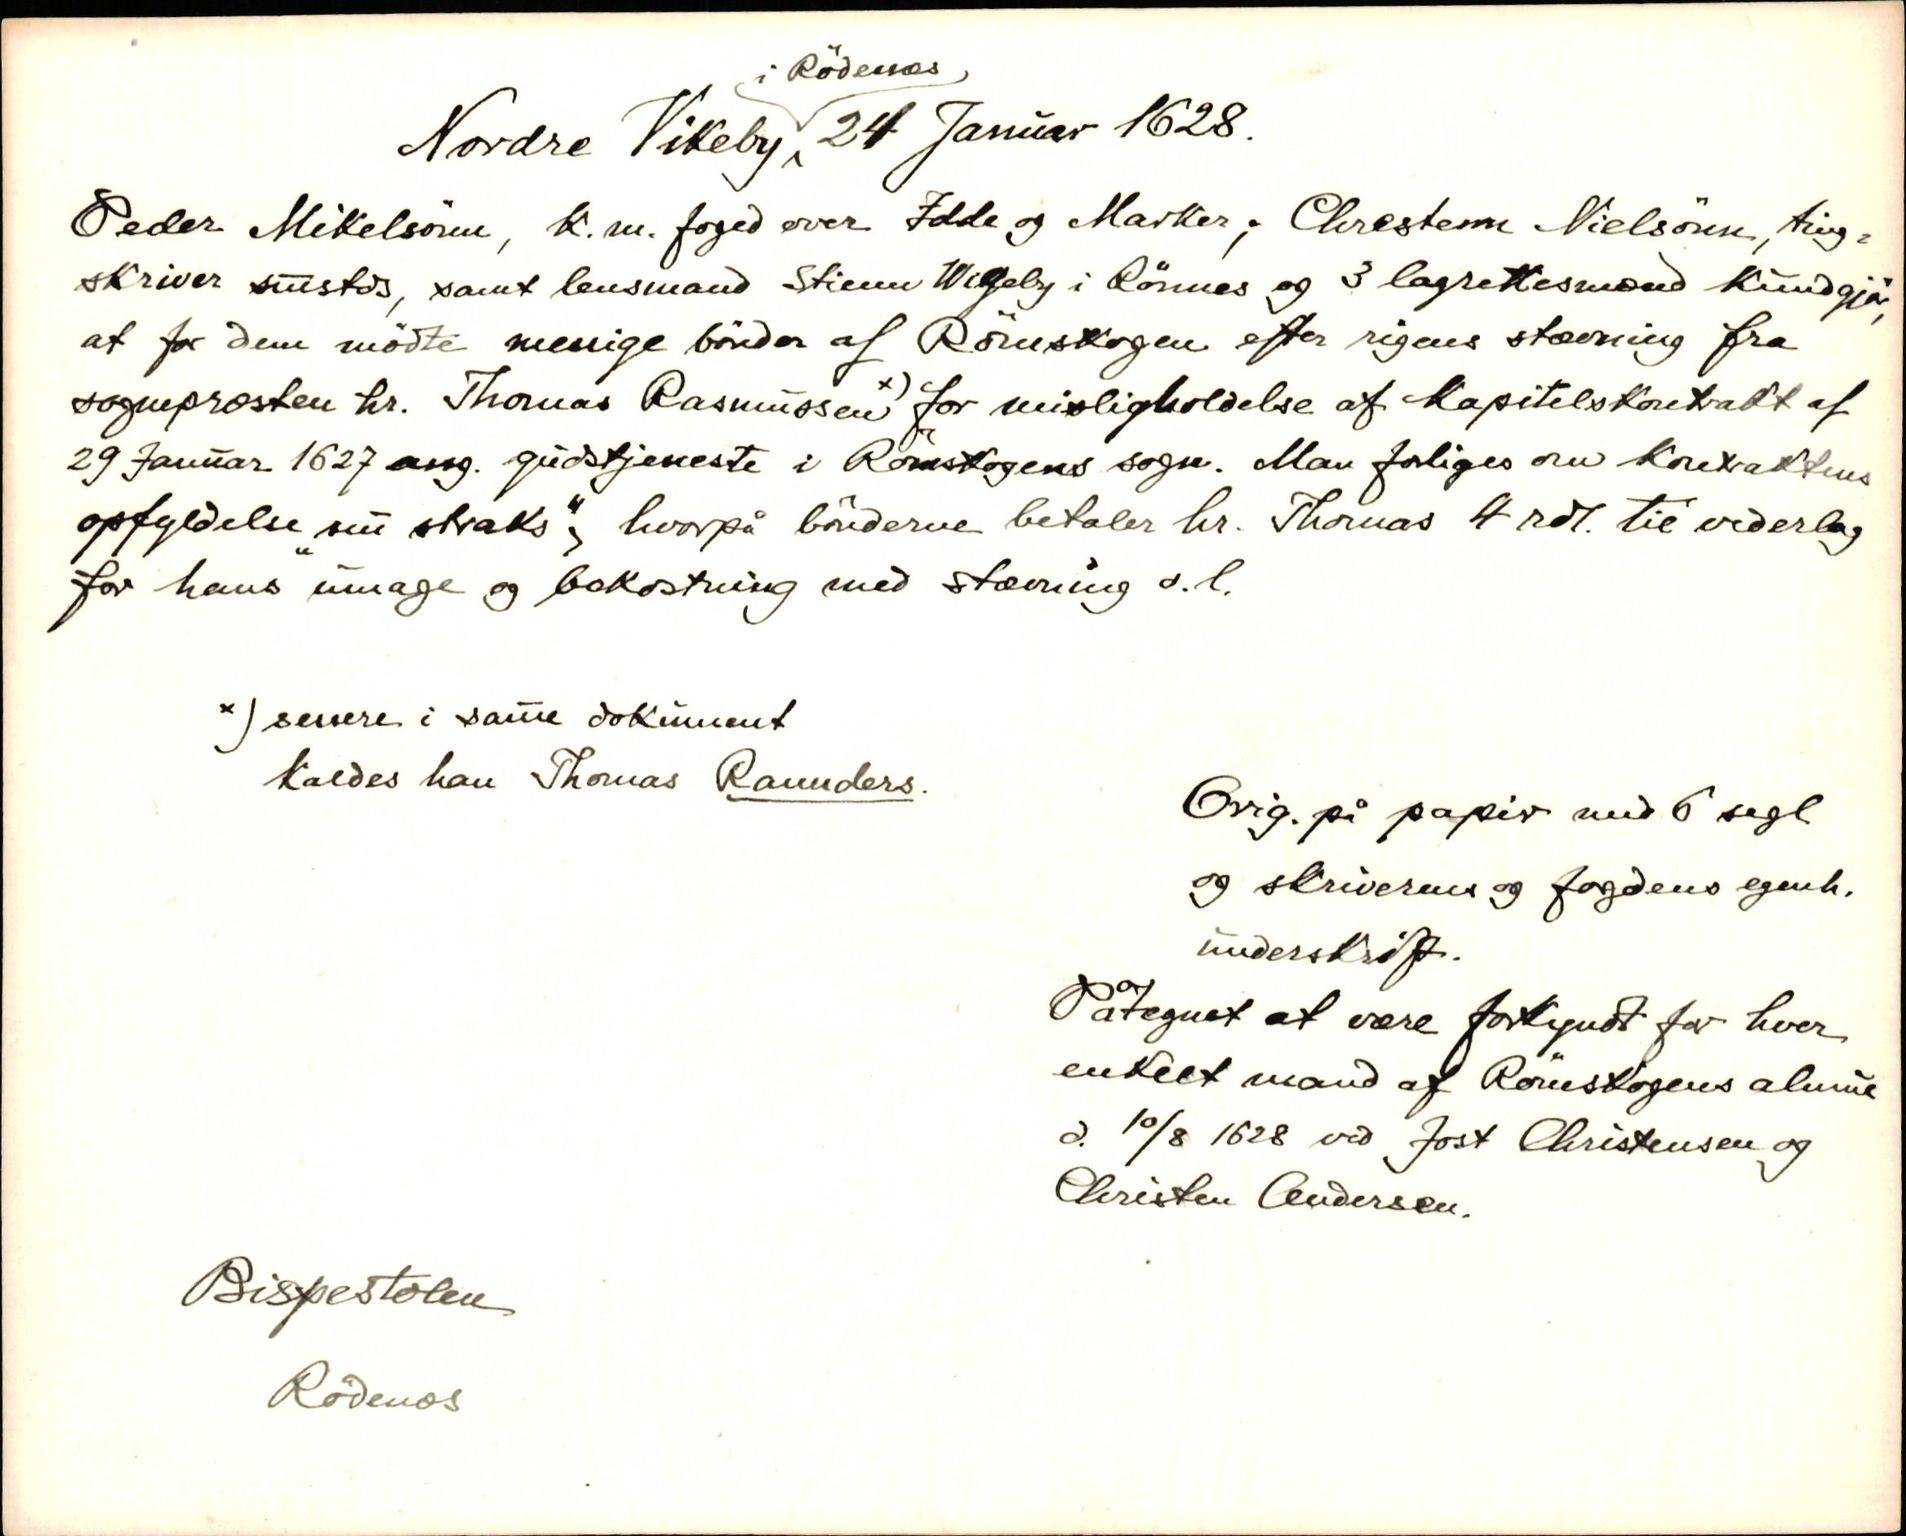 i Rödenæs
Nordre Vikeby, 24 Januar 1628.
Peder Mikelsönn, k.m. foged over Idde og Marker, Chrestenn Nielsönn, ting-
skriver sm̄stds, samt lensmand Stienn Wigeby i Rönnes og 3 lagrettesmænd kundgjör,
at for dem mödte menige bönder af Römskogen efter rigens stævning fra
sognepræsten hr. Thomas Rasmussen x) for misligholdelse af kapitelskontrakt af
29 Januar 1627 ang. gudstjeneste i Römskogens sogn. Man forliges om kontraktens
opfyldelse "nu straks", hvorpå bönderne betaler hr. Thomas 4 rdl. til vederlag
for hans umage og bekostning med stævning o.l.
x) senere i sam̄e dokument
kaldes han Thomas Raunders.
Orig. på papir med 6 segl
og skriverens og fogdens egenh.
underskrift.
Påtegnet at være forkyndt for hver
enkelt mand af Römskogens almue
d. 10/8 1628 ved Jost Christensen og
Christen Andersen.
Bispestolen
Rödenæs